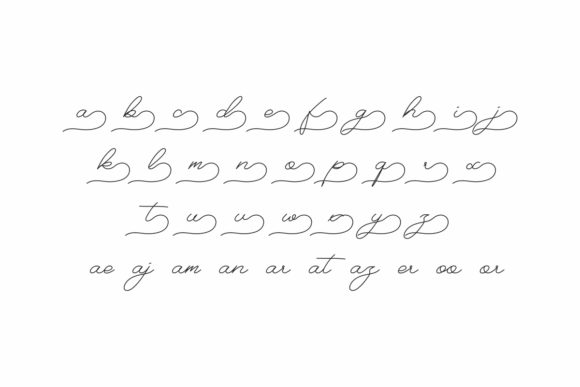 a b c d e f g h i j
k l m n o p q r s
t u v w x y z
ae aj am an ar at az er oo or